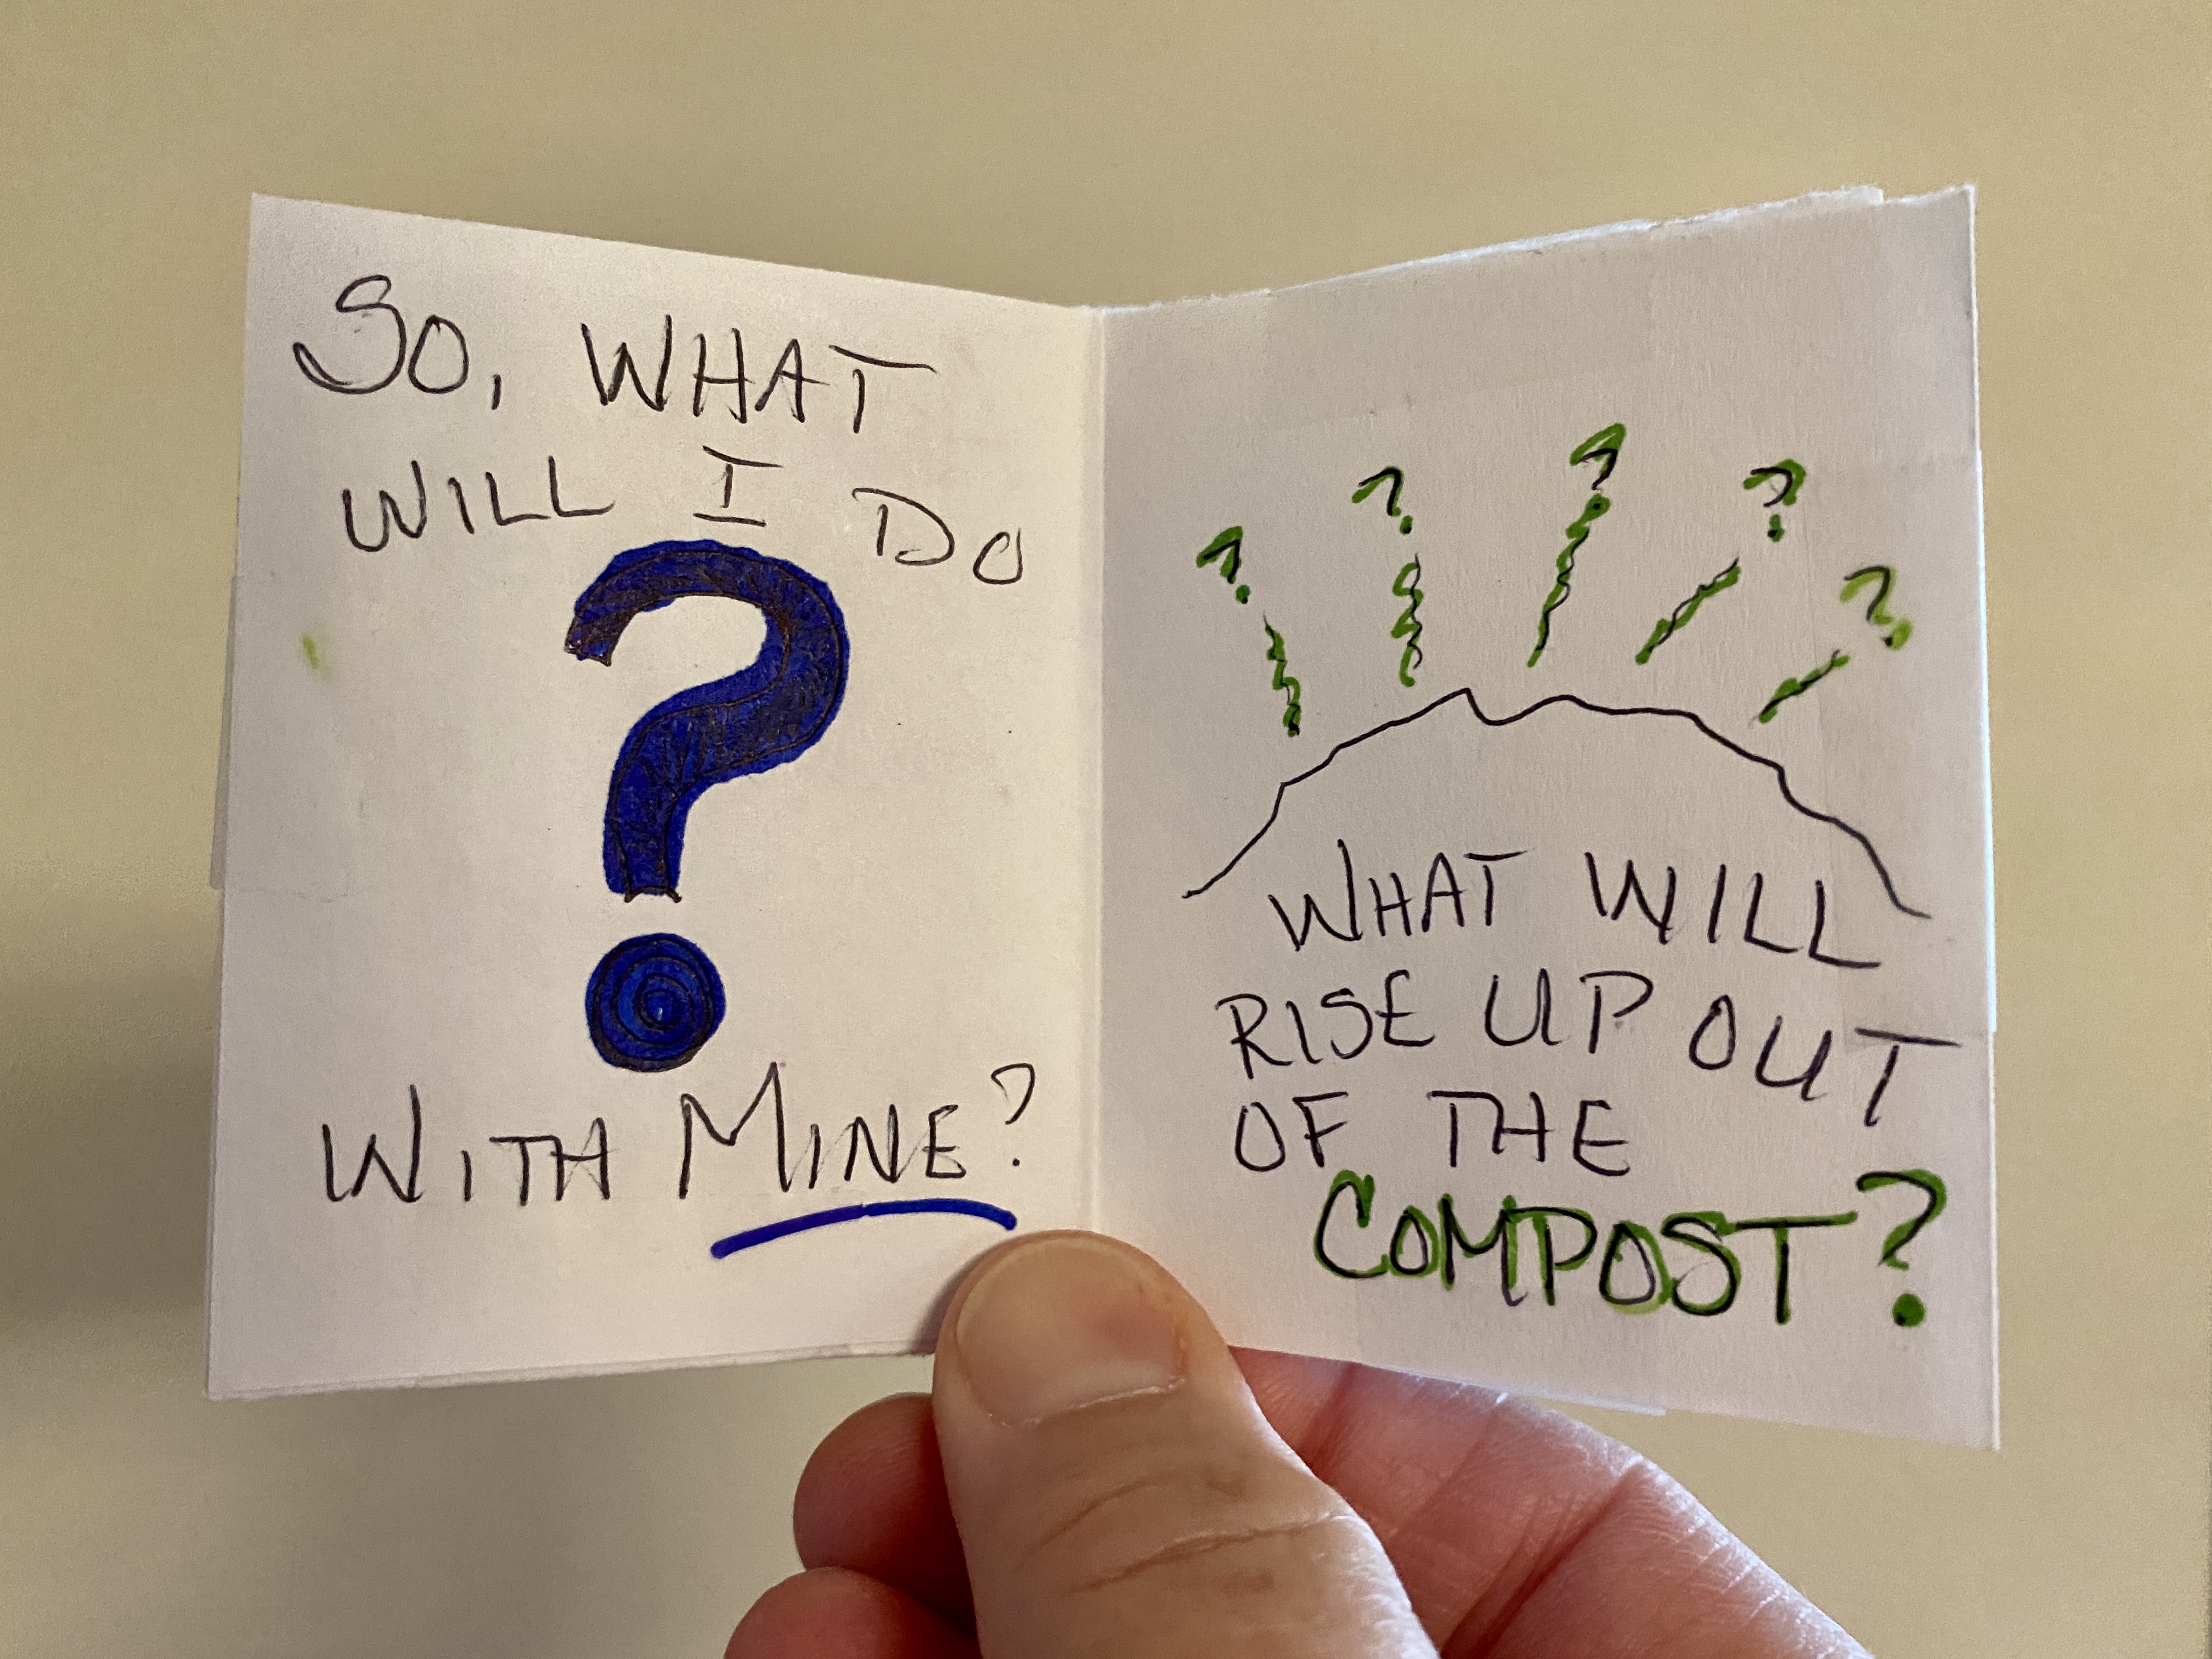 SO, WHAT
WILL I DO
?
WITH MINE?
? ? ? ? ?
WHAT WILL
RISE UP OUT
OF THE
COMPOST?